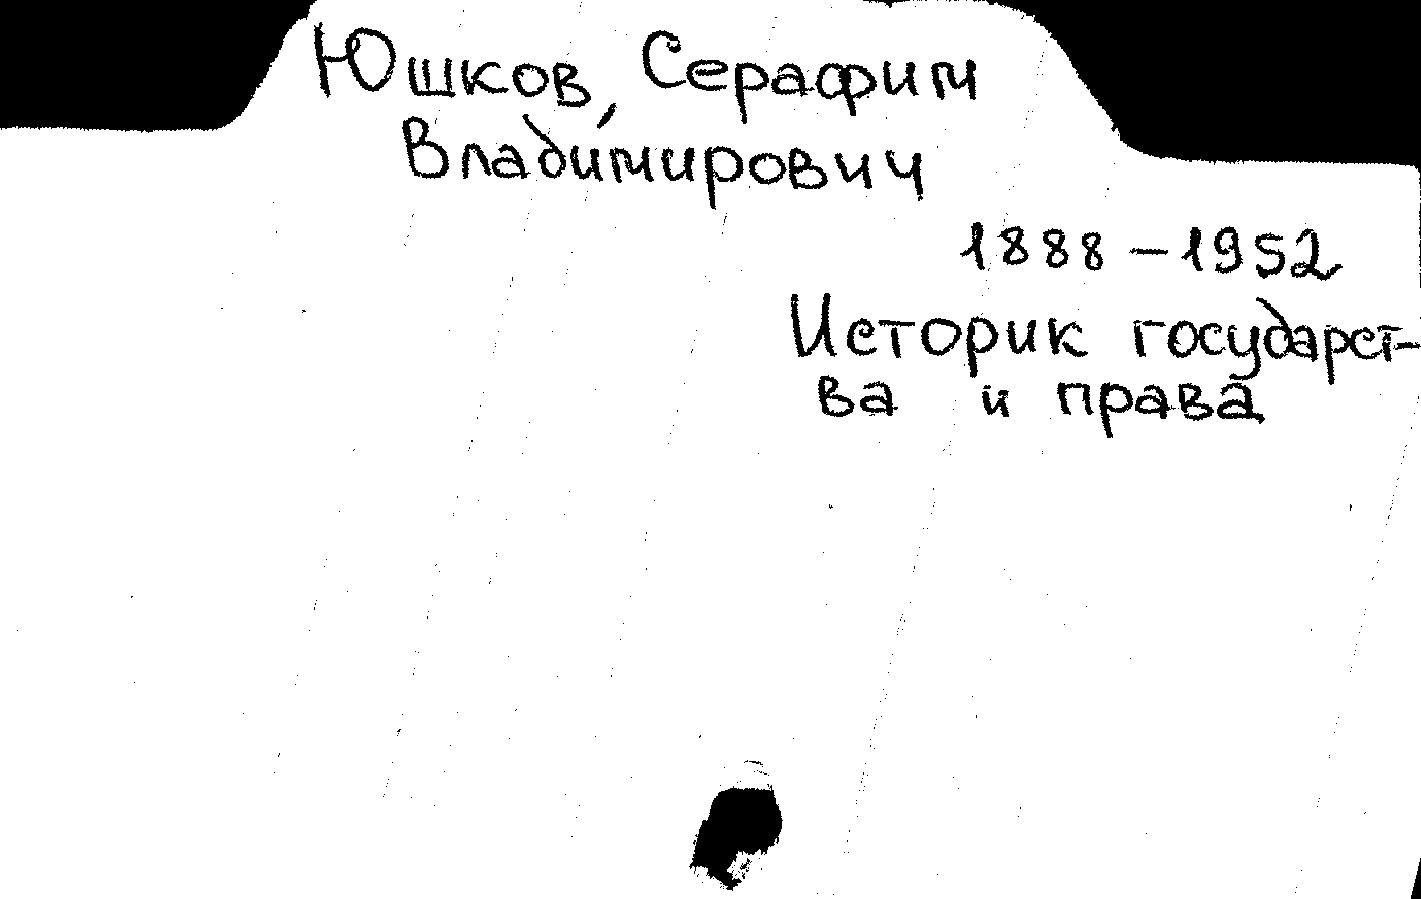 Юшков, Серафим
Владимирович
1888 – 1952
Историк государст-
ва и права